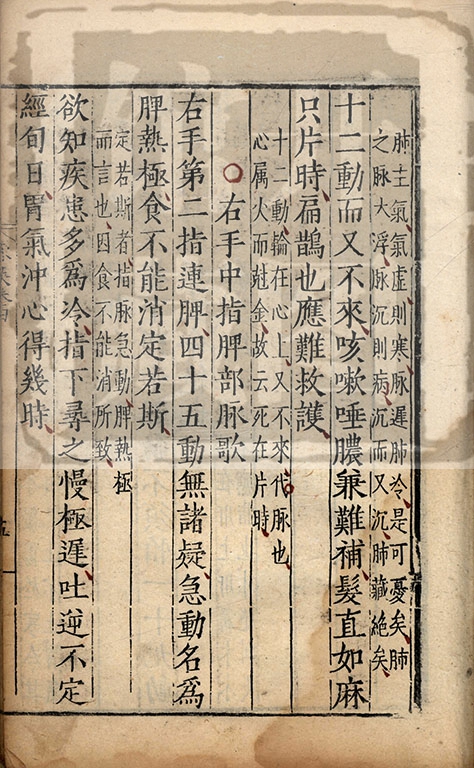 肺主氣氣虛則寒脉遲肺冷是可憂矣肺
之脉大浮脉沉則病沉而又沉肺藏絶矣
十二動而又不來咳嗽唾膿兼難補髮直如麻
只片時扁鵲也應難救護
十二動輪在心上又不來代脉也
心属火而尅金故云死在片時
○右手中指脾部脉歌
右手第二指連脾四十五動無諸疑急動名爲
脾熱極食不能消定若斯
定若斯者指脉急動脾熱極
而言也因食不能消所致
欲知疾患多爲冷指下尋之慢極遲吐逆不定
經旬日胃氣沖心得幾時